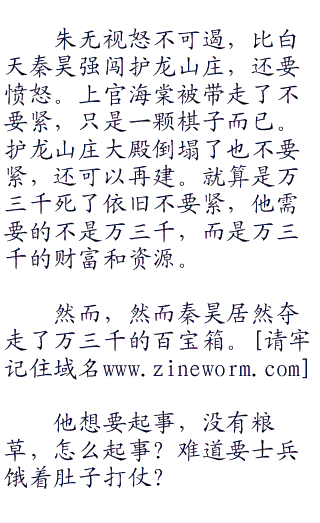 朱无视怒不可遏，比白
天秦昊强闯护龙山庄，还要
愤怒。上官海棠被带走了不
要紧，只是一颗棋子而已。
护龙山庄大殿倒塌了也不要
紧，还可以再建。就算是万
三千死了依旧不要紧，他需
要的不是万三千，而是万三
千的财富和资源。
然而，然而秦昊居然夺
走了万三千的百宝箱。[请牢
记住域名www.zineworm.com]
他想要起事，没有粮
草，怎么起事？难道要士兵
饿着肚子打仗？